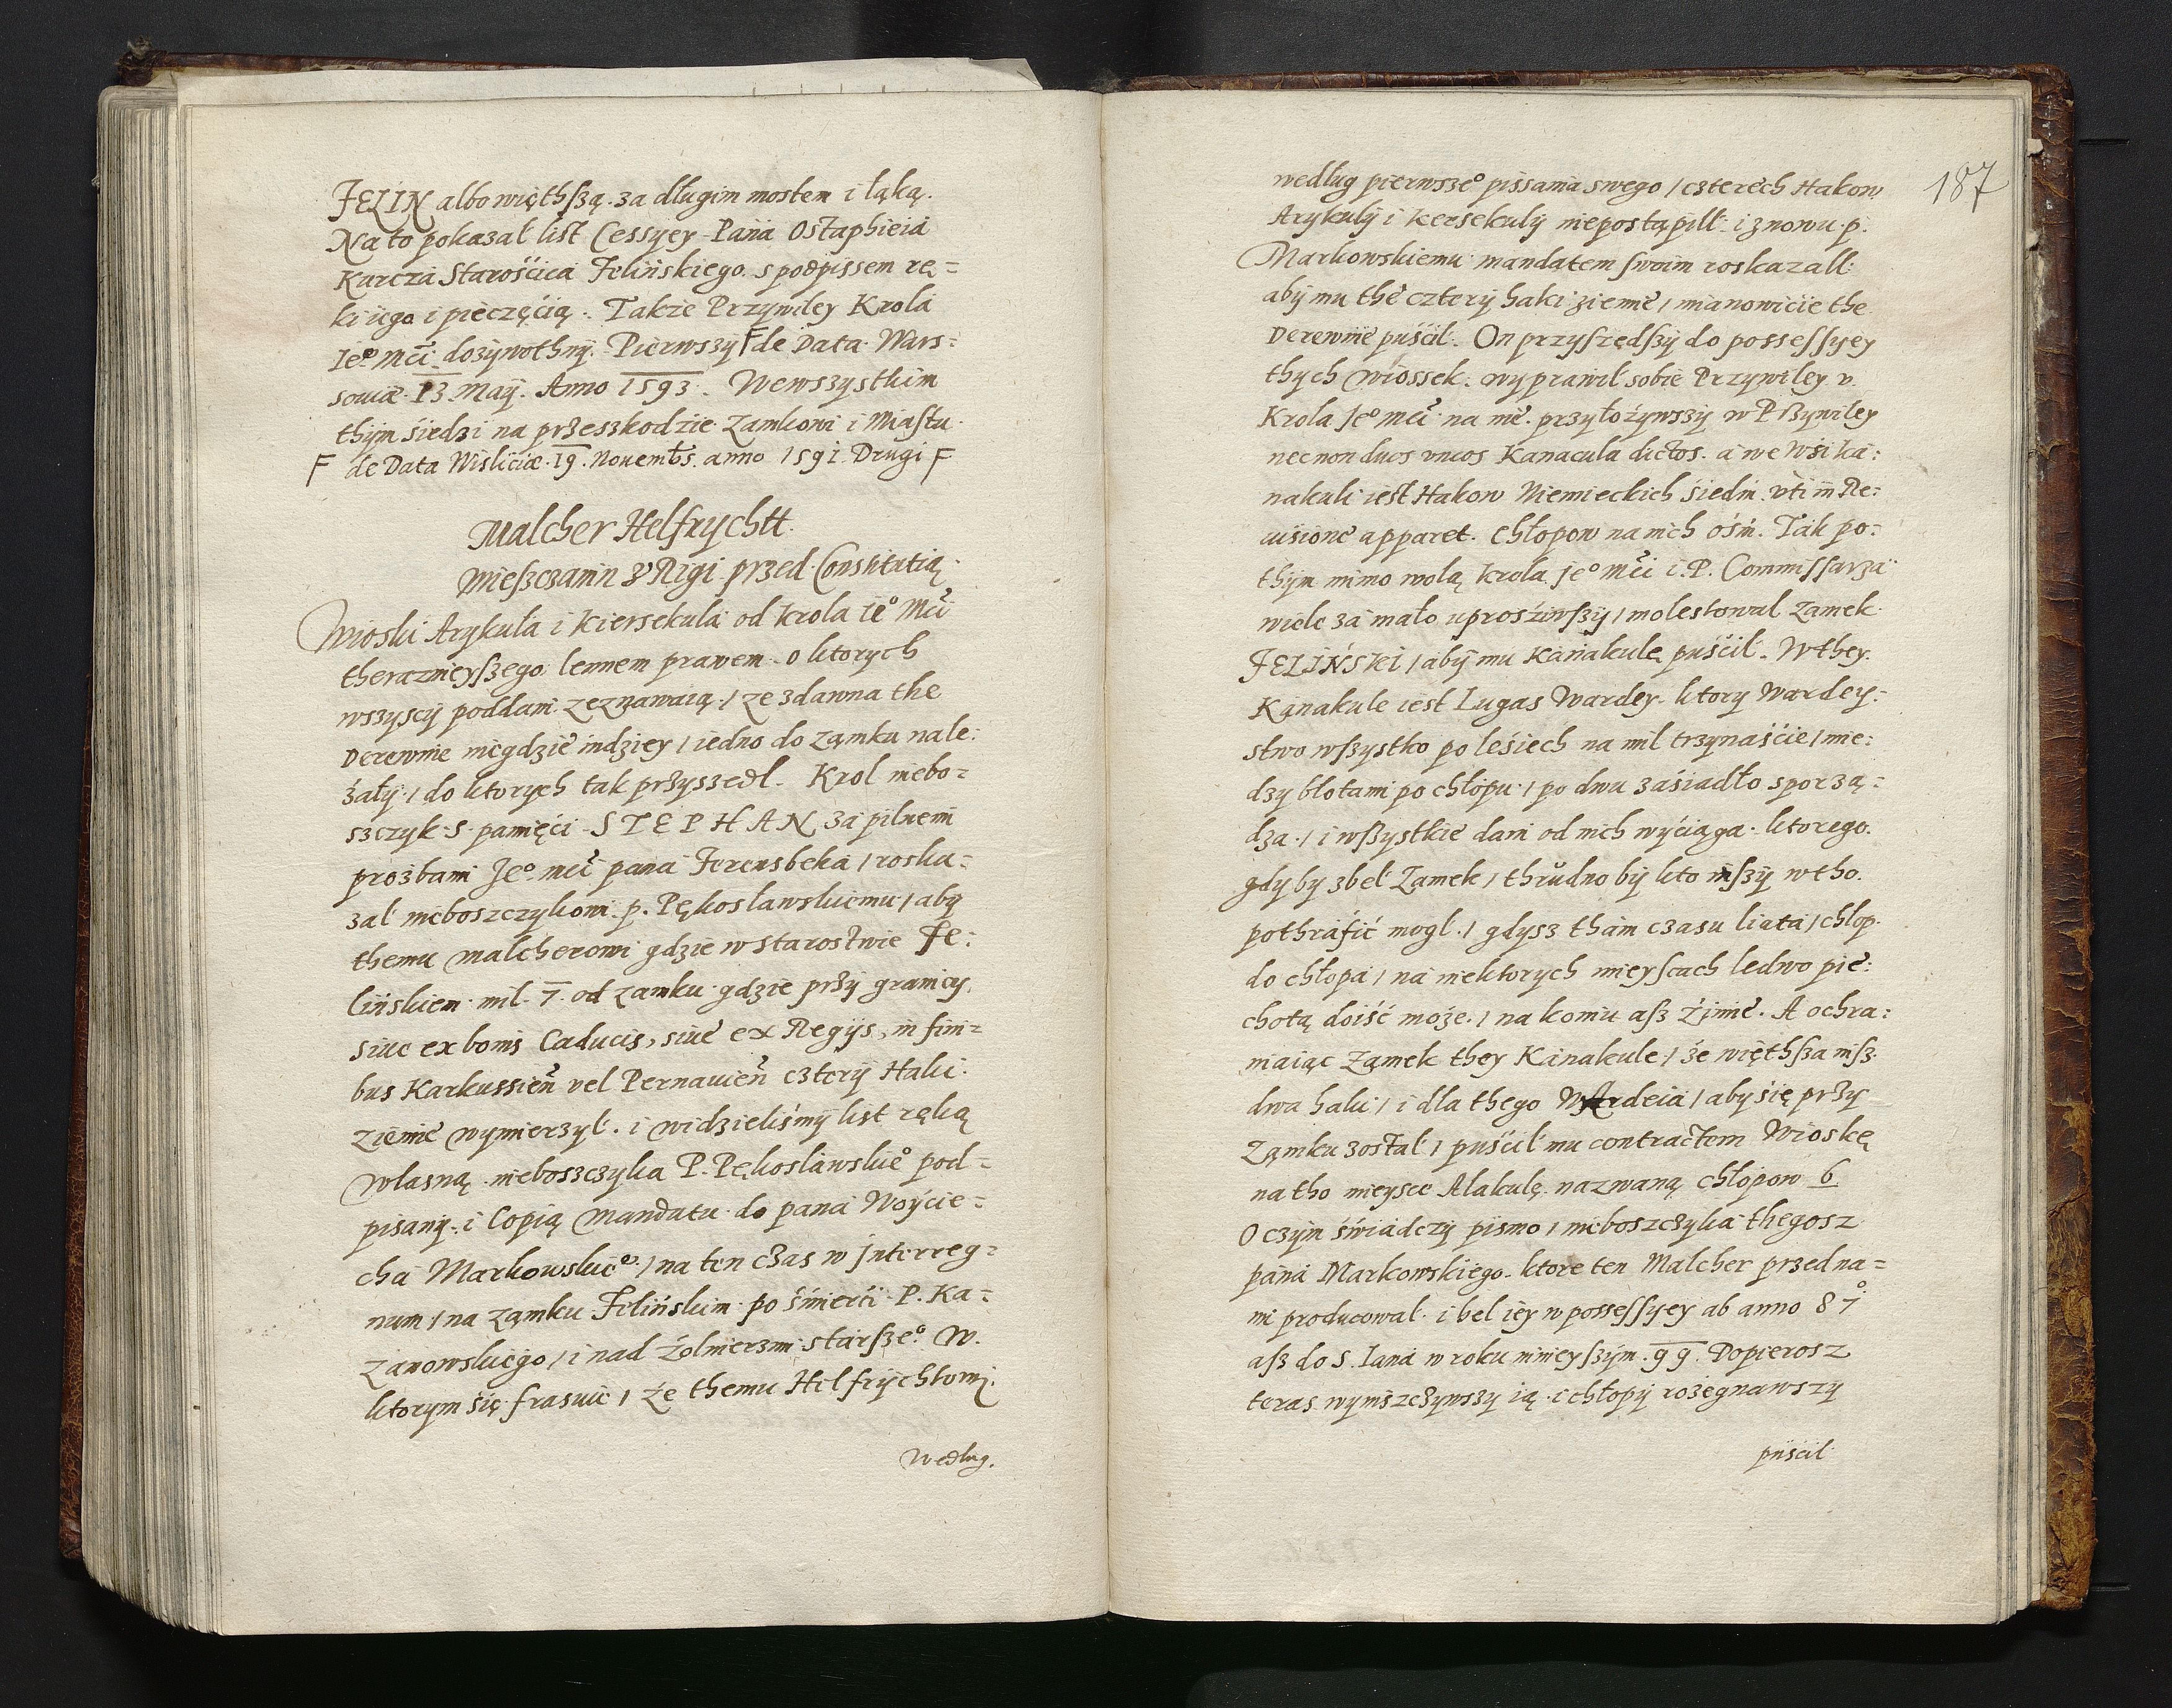 FELIN albo więthſzą. za długim mostem i łąką.
Na to pokazal list Cessyey Pana Ostaphieia
Kurcza Starościca Felińskiego. s podpissem rę=
ki iego i pieczęcią. Takze Przywiley Krola
Ieº Mći dozywothny. Pierwszy F de Data Wars=
soviæ. 13 Maij. Anno 1593. We wszystkim
thÿm siedzi na przeszkodzie Zamkowi i Miastu.
F de Data Wisliciæ. 19. Nouembs. anno 1591. Drugi F
Malcher Helfrychtt.
Mieſzczanin z Rigi przed Constitutią.
Wioski Arykuła i Kiersekula od Krola Ieº Mći
therazneyſzego lennem prawem. o ktorych
wszyscy poddani zeznawaią / ze zdawna the
Derewnie niegdzie indziey / iedno do Zamku nale:
żały / do ktorych tak przyszedl. Krol niebo=
szczyk S. pamięći STEPHAN za pilnemi
prozbami Jeº mći pana Ferensbeka / roska=
zal nieboszczykowi p. Pękoslawskiemu / aby
themu Malcherowi gdzie w starostwie Fe:
lińskiem mil. 7. od zamku gdzie przy granicy,
siue ex bonis Caducis, siue ex Regijs, in fini=
bus Karkussień vel Pernavień cztery Haki.
Ziemie wymierzyl. i widzieliśmy list ręką
własną nieboszczyka P. Pękoslawskieº pod=
pisany. i Copią Mandatu do pana Woycie=
cha Markowskieº / na ten czas w Jnterreg=
num / na zamku Felińskim po śmierći P. Ka=
zanowskiego / i nad żolnierzmi starſzeº. W.
ktorym się frasuie / że themu Helfrychtowi.
według.
187
według pierwszeº pissania swego / czterech Hakow
Arykuly i Kersekuly niepostąpill: i znowu p.
Markowskiemu mandatem swoim roskazall:
aby mu the cztery haki ziemie / mianowicie the
Derewnie puścil. On przyſzedſzy do posseſſyey
thych wiossek. wyprawil sobie Przywiley v.
Krola Jeº Mći na nie. przyłożywszy w Przywiley
necnon duos vncos Kanacula dictos. a we Wsi Ka:
nakuli iest Hakow Niemieckich siedm. vti in Re:
uisione apparet. Chłopow na nich ośm. Tak po:
thym mimo wolą Krola Jeº Mći i. P. Commiſſarza
wiele za mało uprosiwſzy / molestowal Zamek
FELIŃSKI / aby mu Kanakulę puścil. W they.
Kanakule iest Lugas Wardey. ktory Wardey:
stwo wſzystko po leśiech na mil trzynaście / mie:
dzy błotami po chłopu / po dwu zasiadło sporzą=
dza. / i wſzystkie dani od nich wyciąga. ktorego.
gdyby zbel Zamek / thrudno by kto inſzy w tho.
pothrafić mogl. / gdysz tham czasu liata / chłop
do chłopa / na niektorych mieyſcach ledwo pie:
chotą doiść może. / na koniu aſz zimie. A ochra:
niaiąc Zamek they Kanakule / że więthſza niſz
dwa haki / i dla thego Wardeia / aby się przy
Zamku zostal / puścil mu contractem Wioskę
na tho mieysce Alakulę nazwaną chłopow 6
O czym świadczy pismo / nieboszczyka thegosz
pana Markowskiego. ktore ten Malcher przed na=
mi producowal. i bel iey w posseſſyey ab anno 87º
aſz do S. Iana w roku ninieyſzym. 99. Dopierosz
teras wyniszczywszy ią i chłopy rozegnawszy
puścil